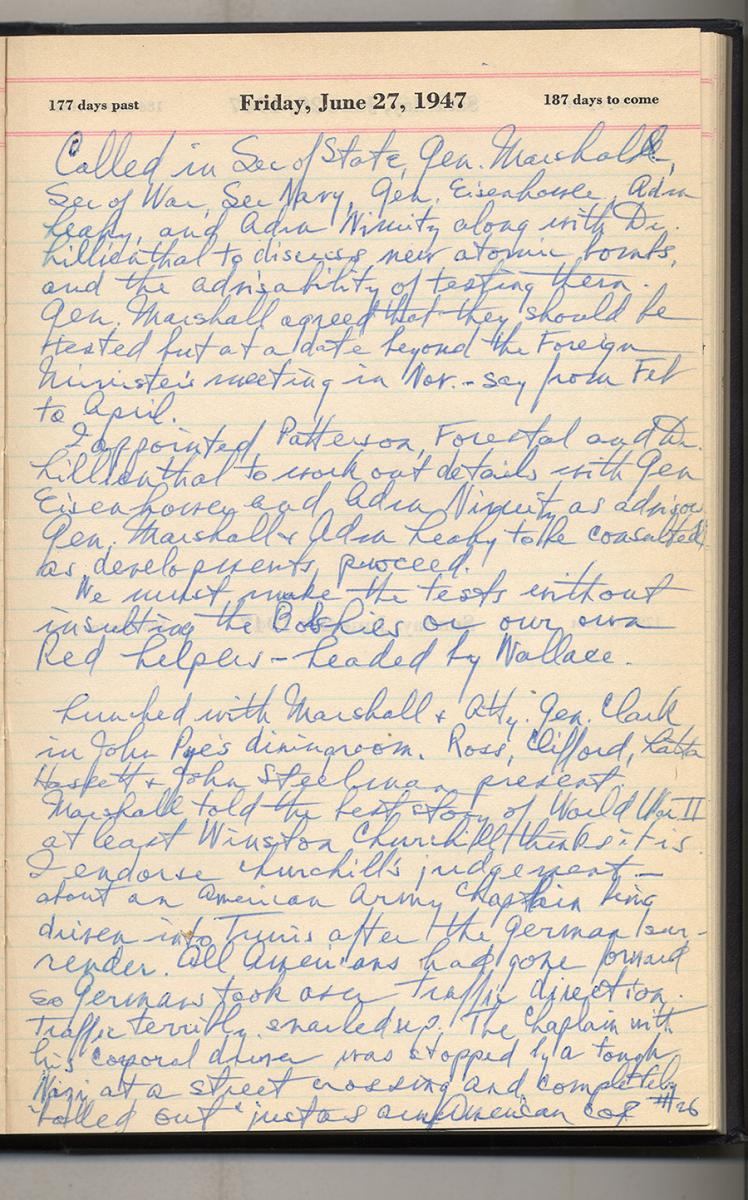 177 days past Friday, June 27, 1947 187 days to come
Called in Sec of State, Gen. Marshall,
Sec of War, Sec Navy, Gen. Eisenhower, Adm
Leahy, and Adm Nimitz along with Dr.
Lillienthal to discuss new atomic bombs,
and the advisability of testing them.
Gen. Marshall agreed that they should be
tested but at a date beyond the Foreign
Minister's meeting in Nov. - say from Feb
to April.
I appointed Patterson, Forestal and Dr.
Lillienthal to work out details with Gen
Eisenhower and Adm Nimitz as advisors
Gen. Marshall & Adm Leahy to be consulted
as developments proceed.
We must make the tests without
insulting the Bolshies or our own
Red helpers - headed by Wallace.
Lunched with Marshall & Atty. Gen. Clark
in John Pye's diningroom. Ross, Clifford, Latta
Hassett & John Steelman present.
Marshall told the best story of World War II
at least Winston Churchill thinks it is.
I endorse Churchill's judgement -
about an American Army Chaplain being
driven into Tunis after the German sur-
render. All Americans had gone forward
so Germans took over traffic direction.
Traffic terribly snarled up. The Chaplain with
his corporal driver was stopped by a tough
Nazi at a street crossing and completely
balled out just as any American cop #26